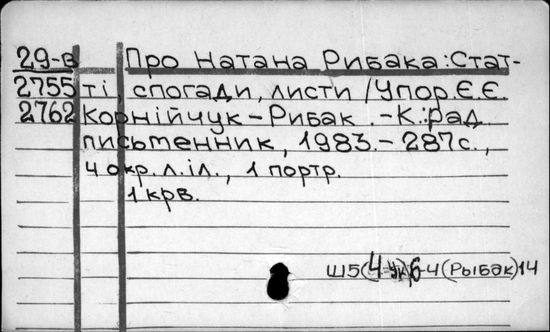 29-в Про Натана Рибака: Стат-
2755 ті спогади, листи /Упор.Є.Є.
2762 Корнійчук-Рибак .-К.: рад.
письменник, 1983.-287с.,
4 окр.л.іл., 1 портр.
1 крв.
Ш5(4-Ук)6-4(Рыбак)14